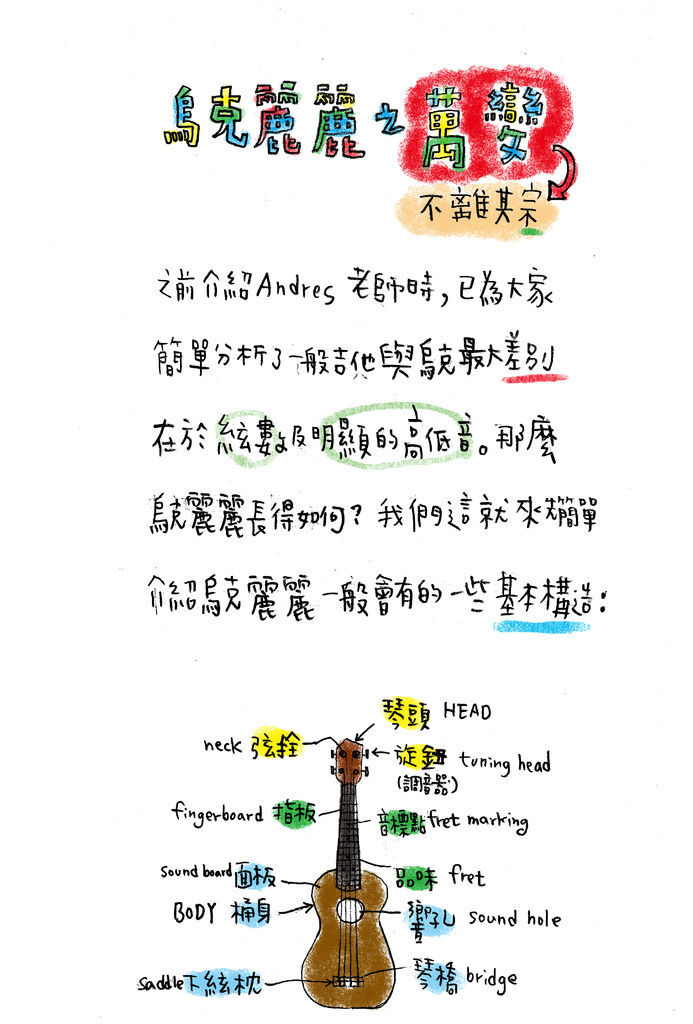 烏克麗麗之萬變
不離其宗
之前介紹Andres 老師時,已為大家
簡單分析了一般吉他與烏克最大差別
在於絃數及明顯的高低音。那麼
烏克麗麗長得如何?我們這就來簡單
介紹烏克麗麗一般會有的一些基本構造:
琴頭 HEAD
neck 弦拴
旋鈕 tuning head
(調音器)
fingerboard 指板
音標點 fret marking
sound board 面板
品味 fret
BODY 桶身
響孔 sound hole
saddle 下絃枕
琴橋 bridge